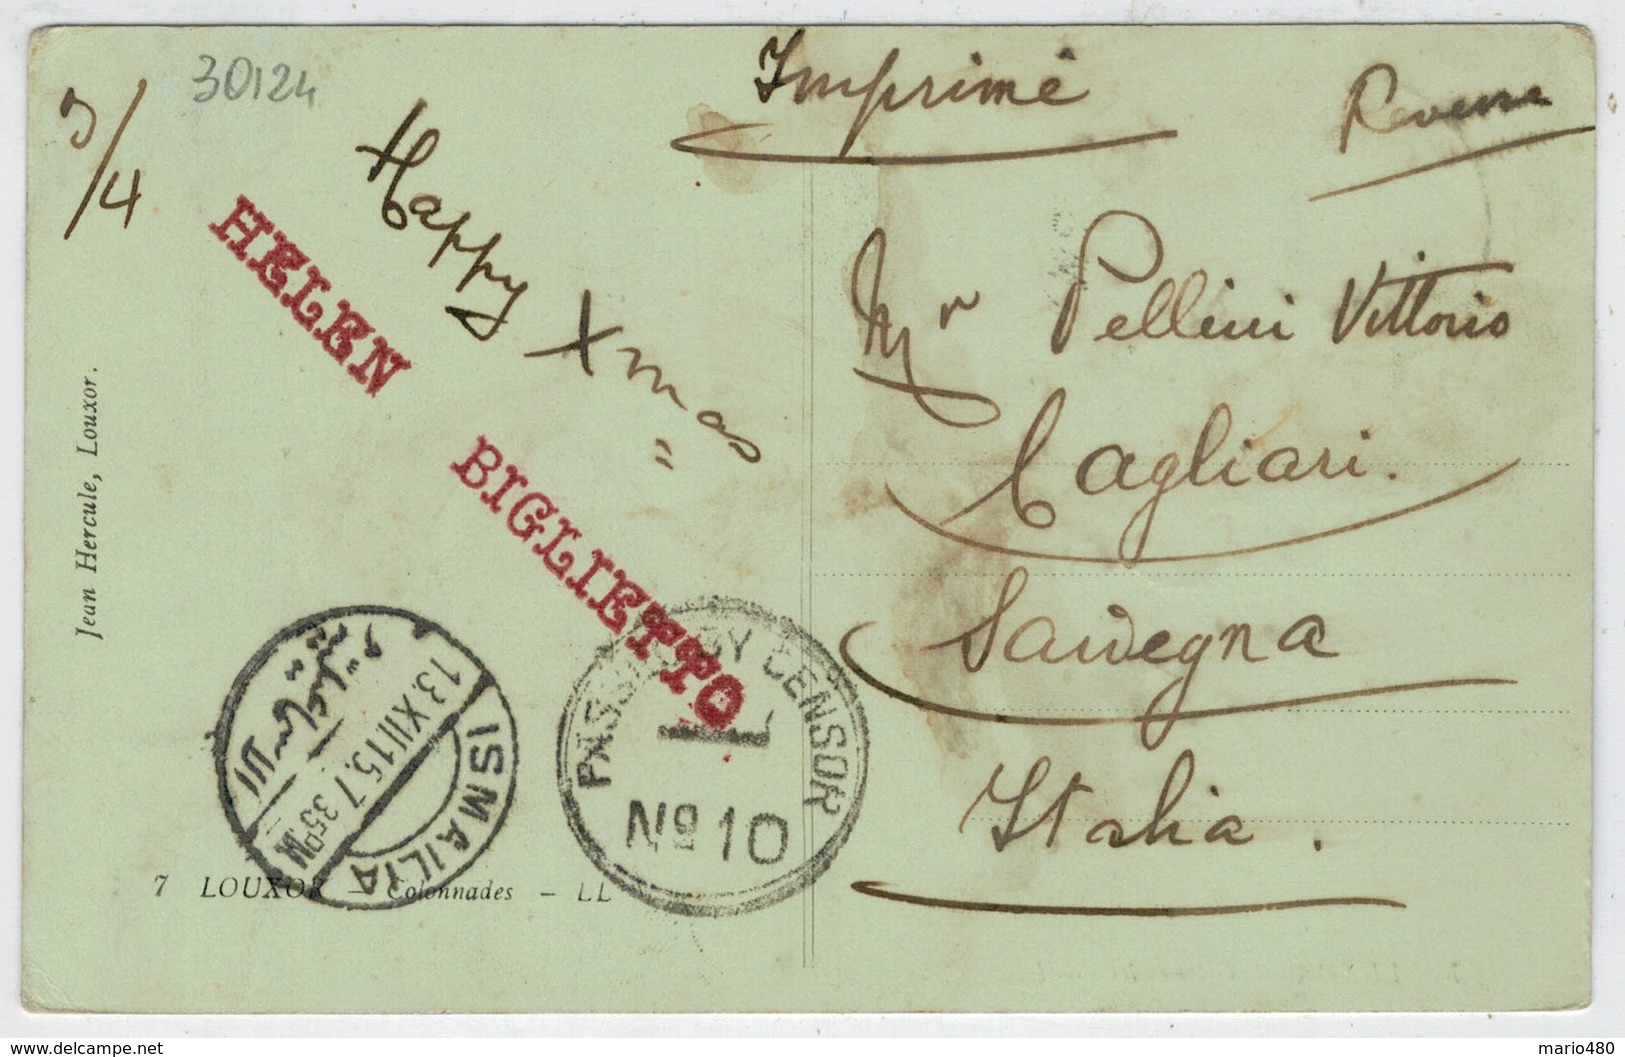 30124
3/4
Imprimé
Happy Xmas
HELEN BIGLIETTO
Mr Pellini Vittorio
Cagliari.
Sardegna
Italia.
Jean Hercule, Louxor.
ISMAILIA
13.XII 15. 7 35 PM
الاسماعيلية
PASSED BY CENSOR
No 10
7 LOUXOR - Colonnades - LL
delcampe.net
mario480